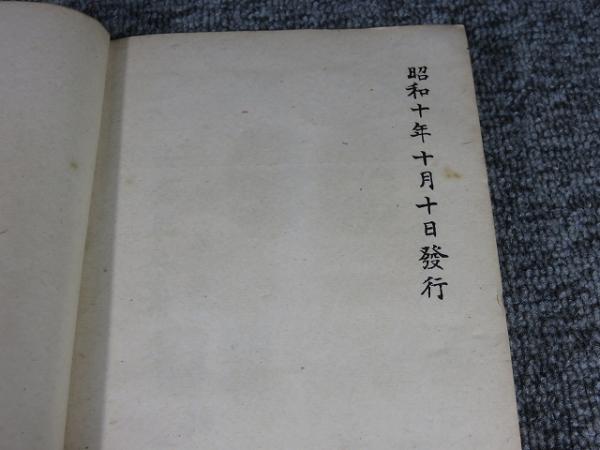 昭和十年十月十日發行